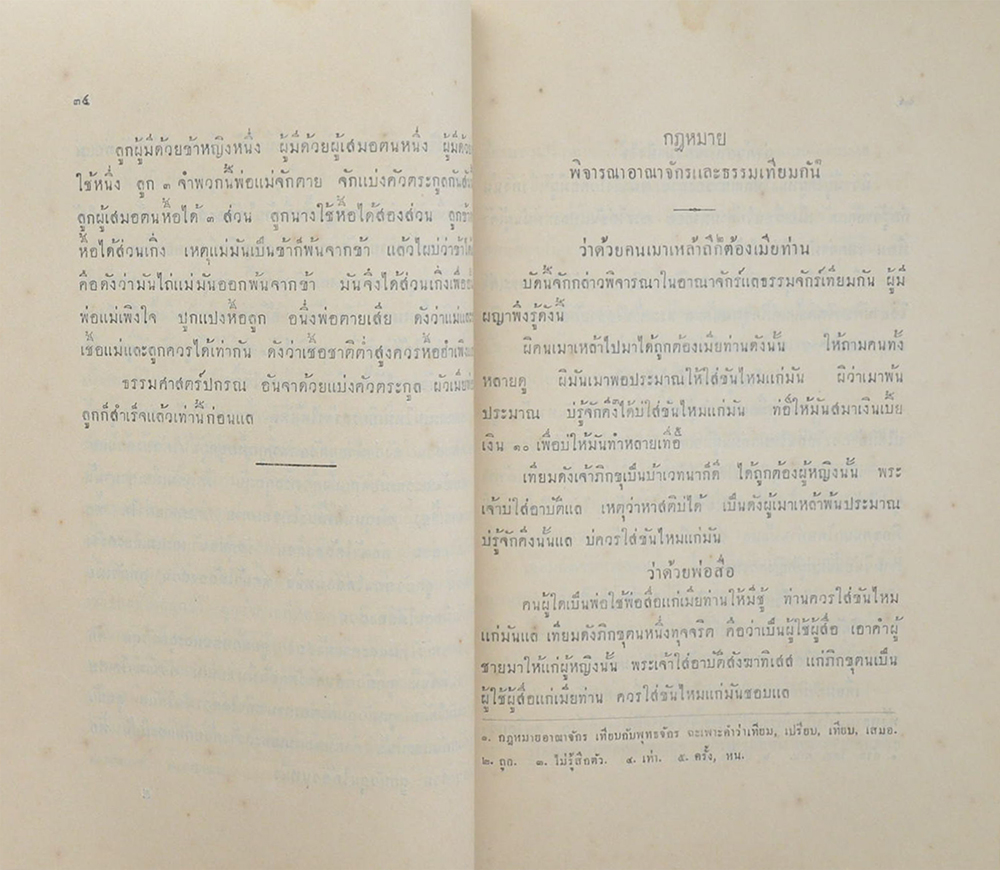 ๓๔
ลูกผู้มีด้วยข้าหญิงหนึ่ง ผู้มีด้วยผู้เสมอตนหนึ่ง ผู้มีด้วย
ใช้หนึ่ง ลูก ๓ จำพวกนี้พ่อแม่จักตาย จักแบ่งครัวตระกูล
ลูกผู้เสมอตนหื้อได้ ๓ ส่วน ลูกนางใช้หื้อได้สองส่วน
หื้อได้ส่วนเกิ่ง เหตุแม่มันเป็นข้าก็พ้นจากข้า แล้วไผบ่ว่าข้าได้
คือดังว่ามันไถ่แม่มันออกพ้นจากข้า มันจึงได้ส่วนเกิ่งเพื่อ
พ่อแม่เพิงใจ ปูกแปงหื้อลูก อนึ่งพ่อตายเสีย ดังว่าแม่และ
เชื้อแม่และลูกควรได้เท่ากัน ดังว่าเชื้อชาติต่ำสูงควรหื้อ
ธรรมศาสตร์ปกรณ อันจาด้วยแบ่งครัวตระกูล ผัวเมียพ่อ
ลูกก็สำเร็จแล้วเท่านี้ก่อนแล
กฎหมาย
พิจารณาอาณาจักรและธรรมเทียมกัน๑
ว่าด้วยคนเมาเหล้าถึก๒ต้องเมียท่าน
บัดนี้จักกล่าวพิจารณาในอาณาจักร์แลธรรมจักร์เทียมกัน ผู้มี
ผญาพึงรู้ดังนี้
ผิคนเมาเหล้าไปมาได้ถูกต้องเมียท่านดังนั้น ให้ถามคนทั้ง
หลายดู ผิมันเมาพอประมาณให้ใส่ขันไหมแก่มัน ผิว่าเมาพ้น
ประมาณ บ่รู้จักคิง๓ได้บ่ใส่ขันไหมแก่มัน ท่อ๔ให้มันสมาเงินเบี้ย
เงิน ๑๐ เพื่อบ่ให้มันทำหลายเทื่อ๕
เทียมดังเจ้าภิกขุเป็นบ้าเวทนาก็ดี ได้ถูกต้องผู้หญิงนั้น พระ
เจ้าบ่ใส่อาบัติแล เหตุว่าหาสติบ่ได้ เป็นดังผู้เมาเหล้าพ้นประมาณ
บ่รู้จักคิงนั้นแล บ่ควรใส่ขันไหมแก่มัน
ว่าด้วยพ่อสื่อ
คนผู้ใดเป็นพ่อใช้พ่อสื่อแก่เมียท่านให้มีชู้ ท่านควรใส่ขันไหม
แก่มันแล เทียมดังภิกขุตนหนึ่งทุจจริต คือว่าเป็นผู้ใช้ผู้สื่อ เอาคำผู้
ชายมาให้แก่ผู้หญิงนั้น พระเจ้าใส่อาบัติสังฆาทิเสส แก่ภิกขุตนเป็น
ผู้ใช้ผู้สื่อแก่เมียท่าน ควรใส่ขันไหมแก่มันชอบแล
๑. กฎหมายอาณาจักร เทียบกับพุทธจักร ฉะเพาะคำว่าเทียม, เปรียบ, เทียบ, เสมอ.
๒. ถูก. ๓. ไม่รู้สึกตัว. ๔. เท่า. ๕. ครั้ง, หน.